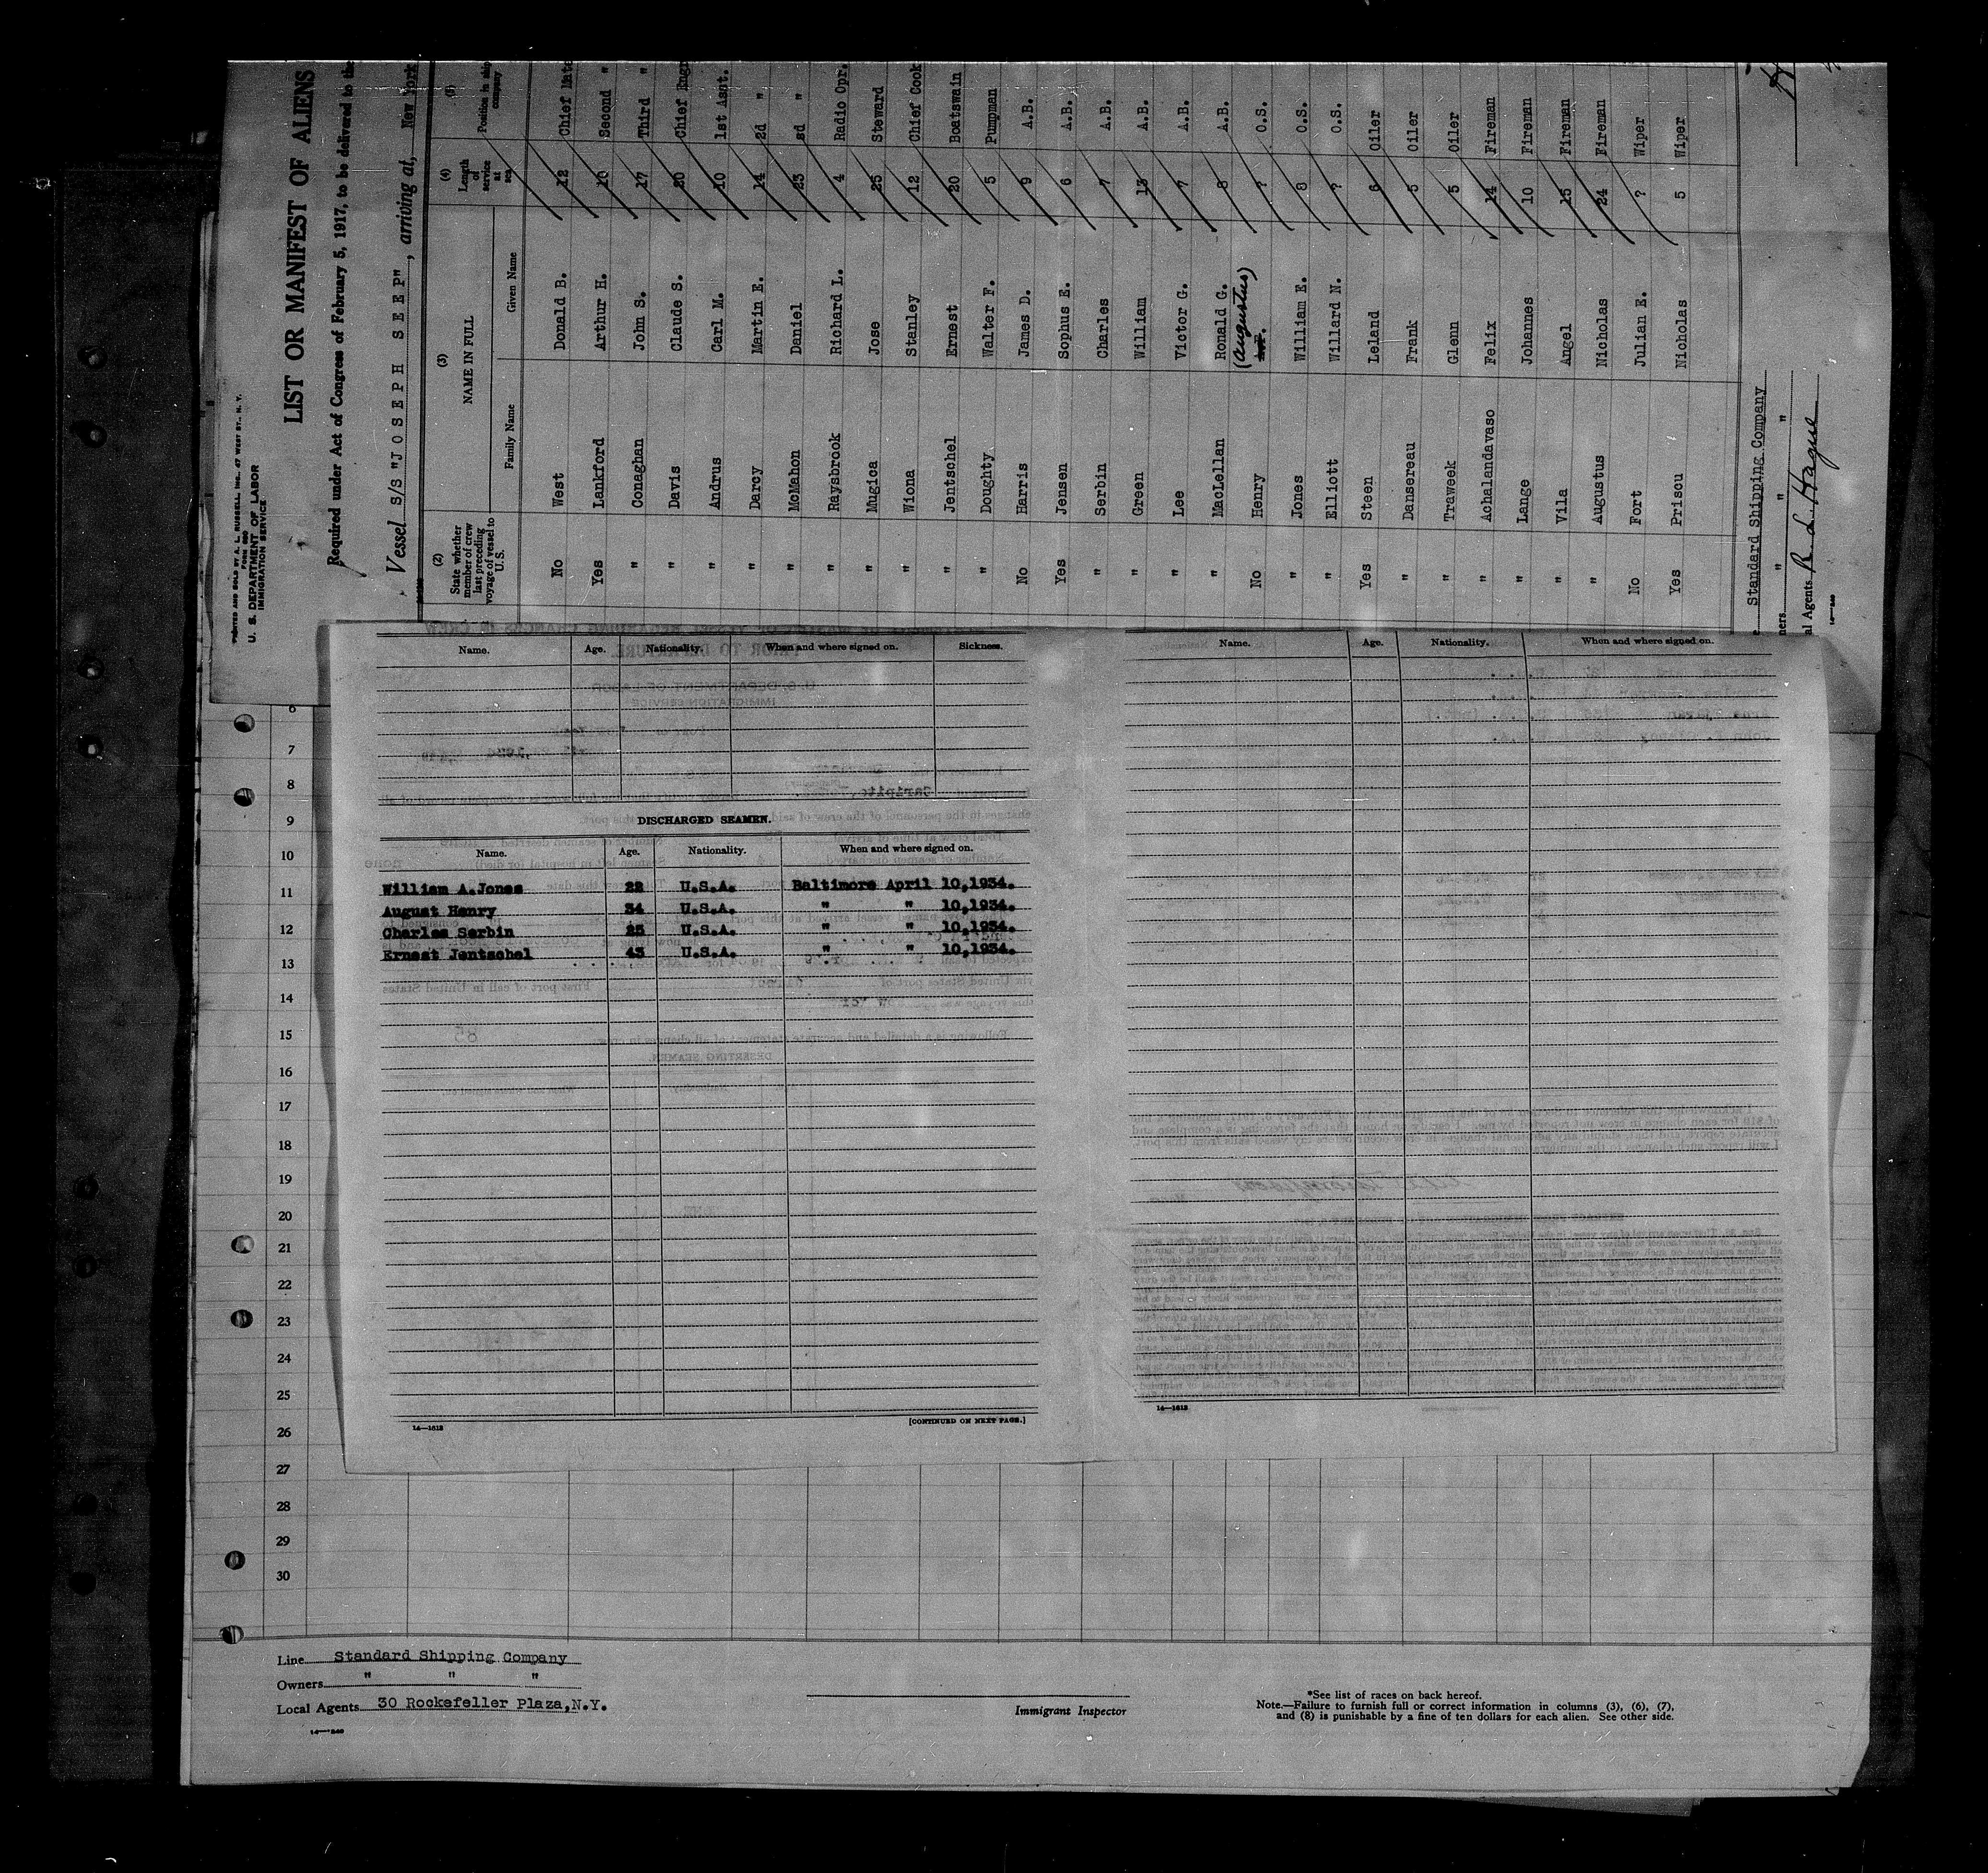 PRINTED AND SOLD BY A. L. RUSSELL, INC., 47 WEST ST., N. Y.
FORM 680
U. S. DEPARTMENT OF LABOR
IMMIGRATION SERVICE
LIST OR MANIFEST OF ALIENS
Required under Act of Congress of February 5, 1917, to be delivered to the
Vessel S/S "JOSEPH SEEP", arriving at, New York
(2) State whether member of crew last preceding voyage of vessel to U. S. (3) NAME IN FULL Family Name Given Name (4) Length of service at sea Position in ship company
No West Donald B. 12 Chief Mate
Yes Lankford Arthur H. 10 Second "
" Conaghan John S. 17 Third "
" Davis Claude S. 20 Chief Engr
" Andrus Carl M. 10 1st Asst.
" Darcy Martin E. 14 2d "
" McMahon Daniel 23 3d "
" Raysbrook Richard L. 4 Radio Opr.
" Mugica Jose 25 Steward
" Wiona Stanley 12 Chief Cook
" Jentschel Ernest 20 Boatswain
" Doughty Walter F. 5 Pumpman
No Harris James D. 9 A.B.
Yes Jensen Sophus E. 6 A.B.
" Serbin Charles 7 A.B.
" Green William 13 A.B.
" Lee Victor G. 7 A.B.
" MacLellan Ronald G. 8 A.B.
No Henry (Augustus) ? O.S.
" Jones William E. 8 O.S.
" Elliott Willard N. ? O.S.
Yes Steen Leland 6 Oiler
" Dansereau Frank 5 Oiler
" Traweek Glenn 5 Oiler
" Achalandavaso Felix 14 Fireman
" Lange Johannes 10 Fireman
" Vila Angel 15 Fireman
" Augustus Nicholas 24 Fireman
No Fort Julian E. ? Wiper
Yes Priscu Nicholas 5 Wiper
Standard Shipping Company
" " "
Agents R. L. Hague
Name. Age. Nationality. When and where signed on. Sickness.
DISCHARGED SEAMEN.
Name. Age. Nationality. When and where signed on.
William A.Jones 22 U.S.A. Baltimore April 10,1934.
August Henry 34 U.S.A. " " 10,1934.
Charles Serbin 25 U.S.A. " " 10,1934.
Ernest Jentschel 43 U.S.A. " " 10,1934.
14—1618
[CONTINUED ON NEXT PAGE.]
Name. Age. Nationality. When and where signed on.
14—1618
6
7
8
9
10
11
12
13
14
15
16
17
18
19
20
21
22
23
24
25
26
27
28
29
30
Line Standard Shipping Company
Owners " " "
Local Agents 30 Rockefeller Plaza,N.Y.
Immigrant Inspector
*See list of races on back hereof.
Note.—Failure to furnish full or correct information in columns (3), (6), (7),
and (8) is punishable by a fine of ten dollars for each alien. See other side.